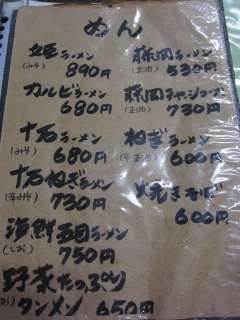 めん
姫ラーメン
(みそ) 890円
カルビラーメン
680円
十石ラーメン
(みそ) 680円
十石ねぎラーメン
(辛みそ) 730円
海鮮五目ラーメン
(しお) 750円
野菜たっぷり
タンメン 650円
藤岡ラーメン
(正油) 530円
藤岡チャーシューメン
(正油) 730円
ねぎラーメン
(辛正油) 600円
焼きそば
600円